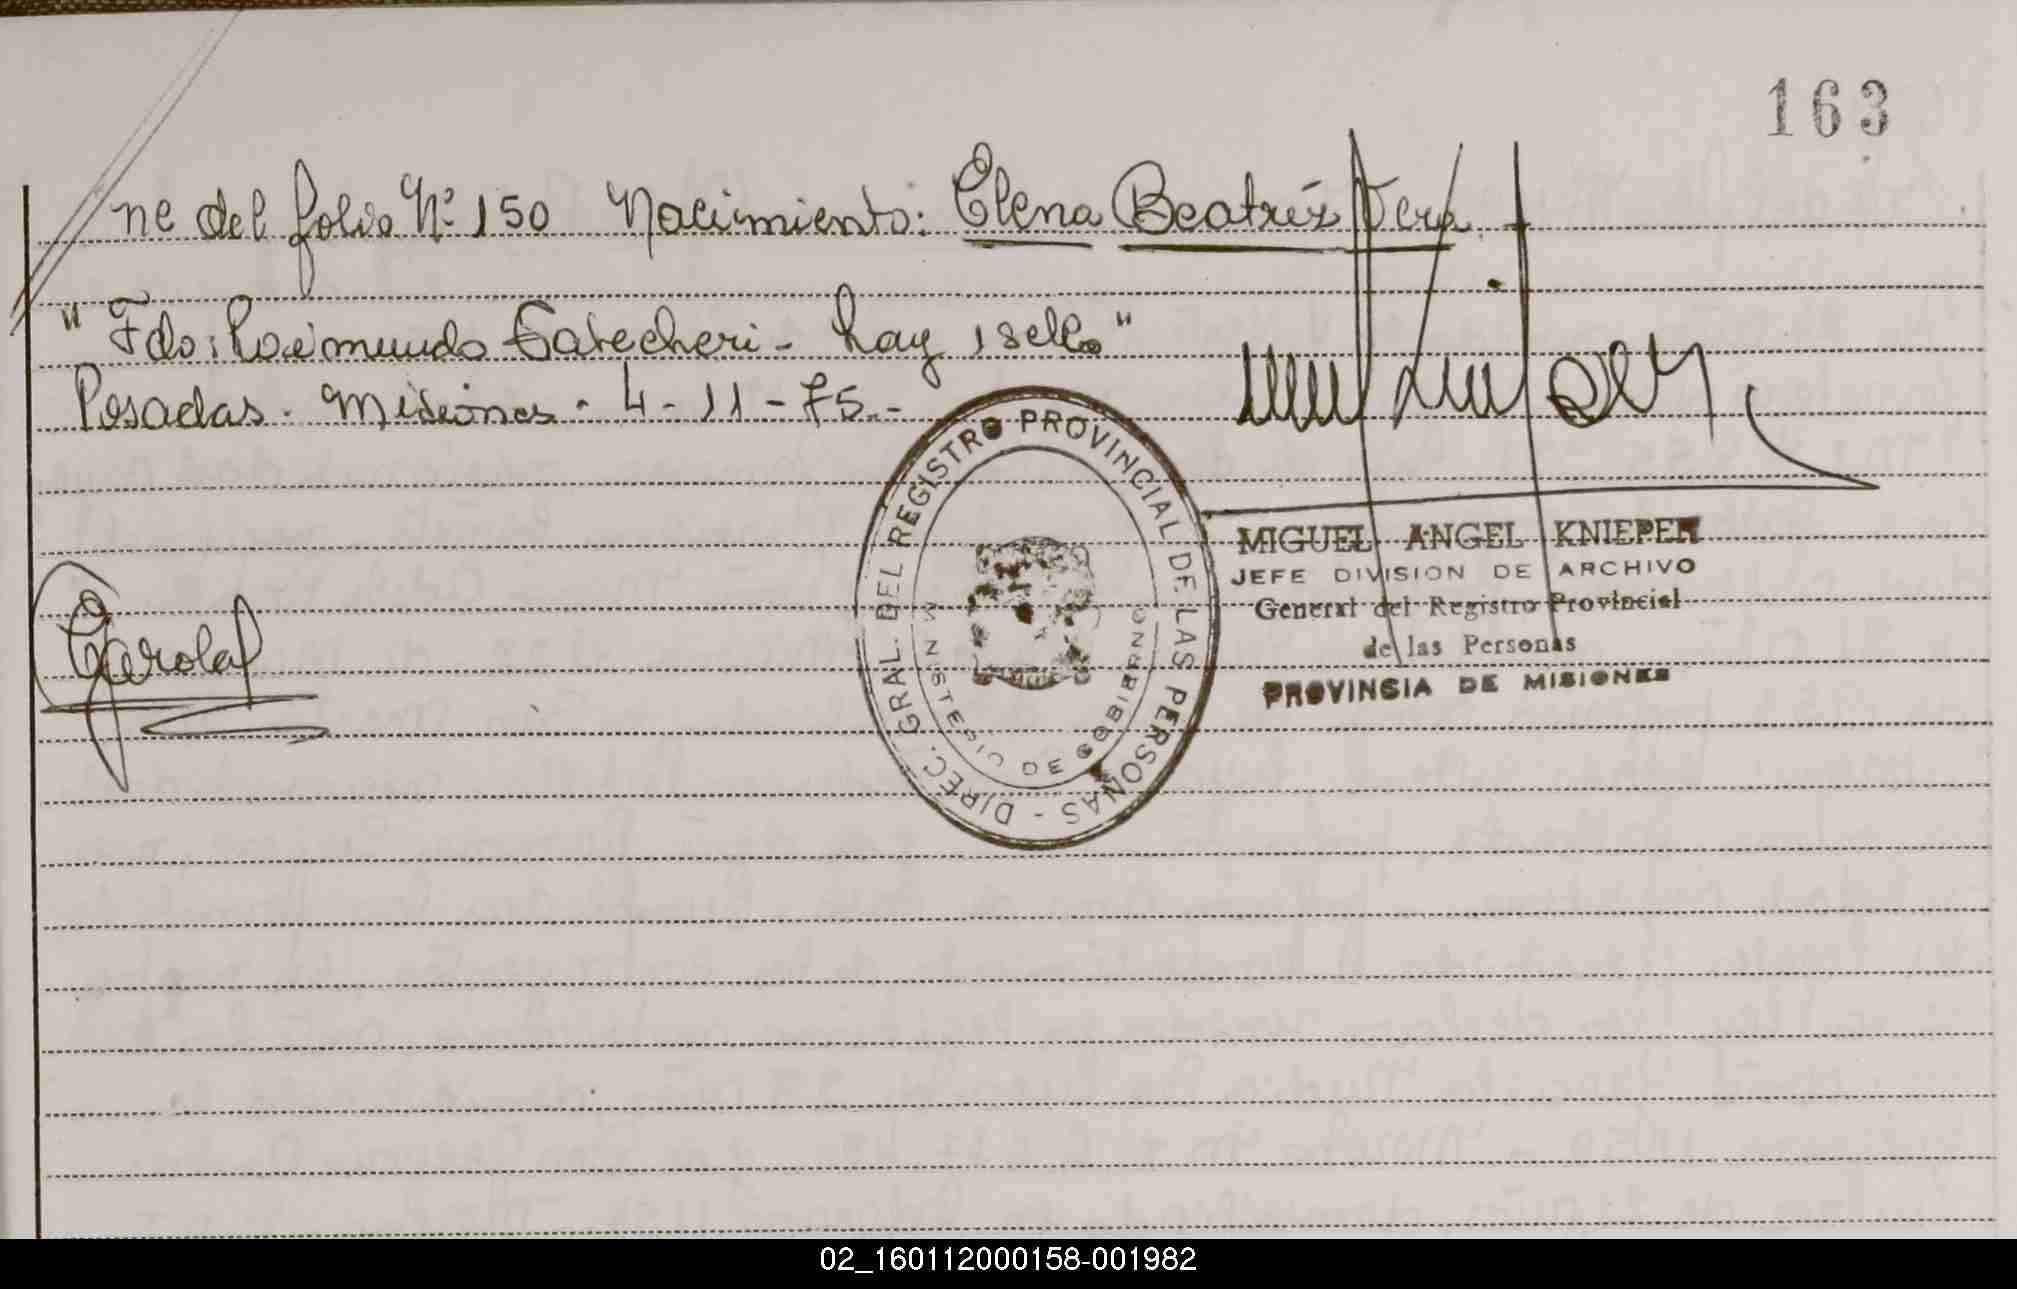 163
ne del folio Nº 150 Nacimiento: Elena Beatríz Vera.
"Fdo: Raimundo Catecheri - hay 1 sello"
Posadas - Misiones - 4-11-75.-
DIREC. GRAL. DEL REGISTRO PROVINCIAL DE LAS PERSONAS -
MINISTERIO DE GOBIERNO
MIGUEL ANGEL KNIEPER
JEFE DIVISION DE ARCHIVO
General del Registro Provincial
de las Personas
PROVINSIA DE MISIONES
02_160112000158-001982